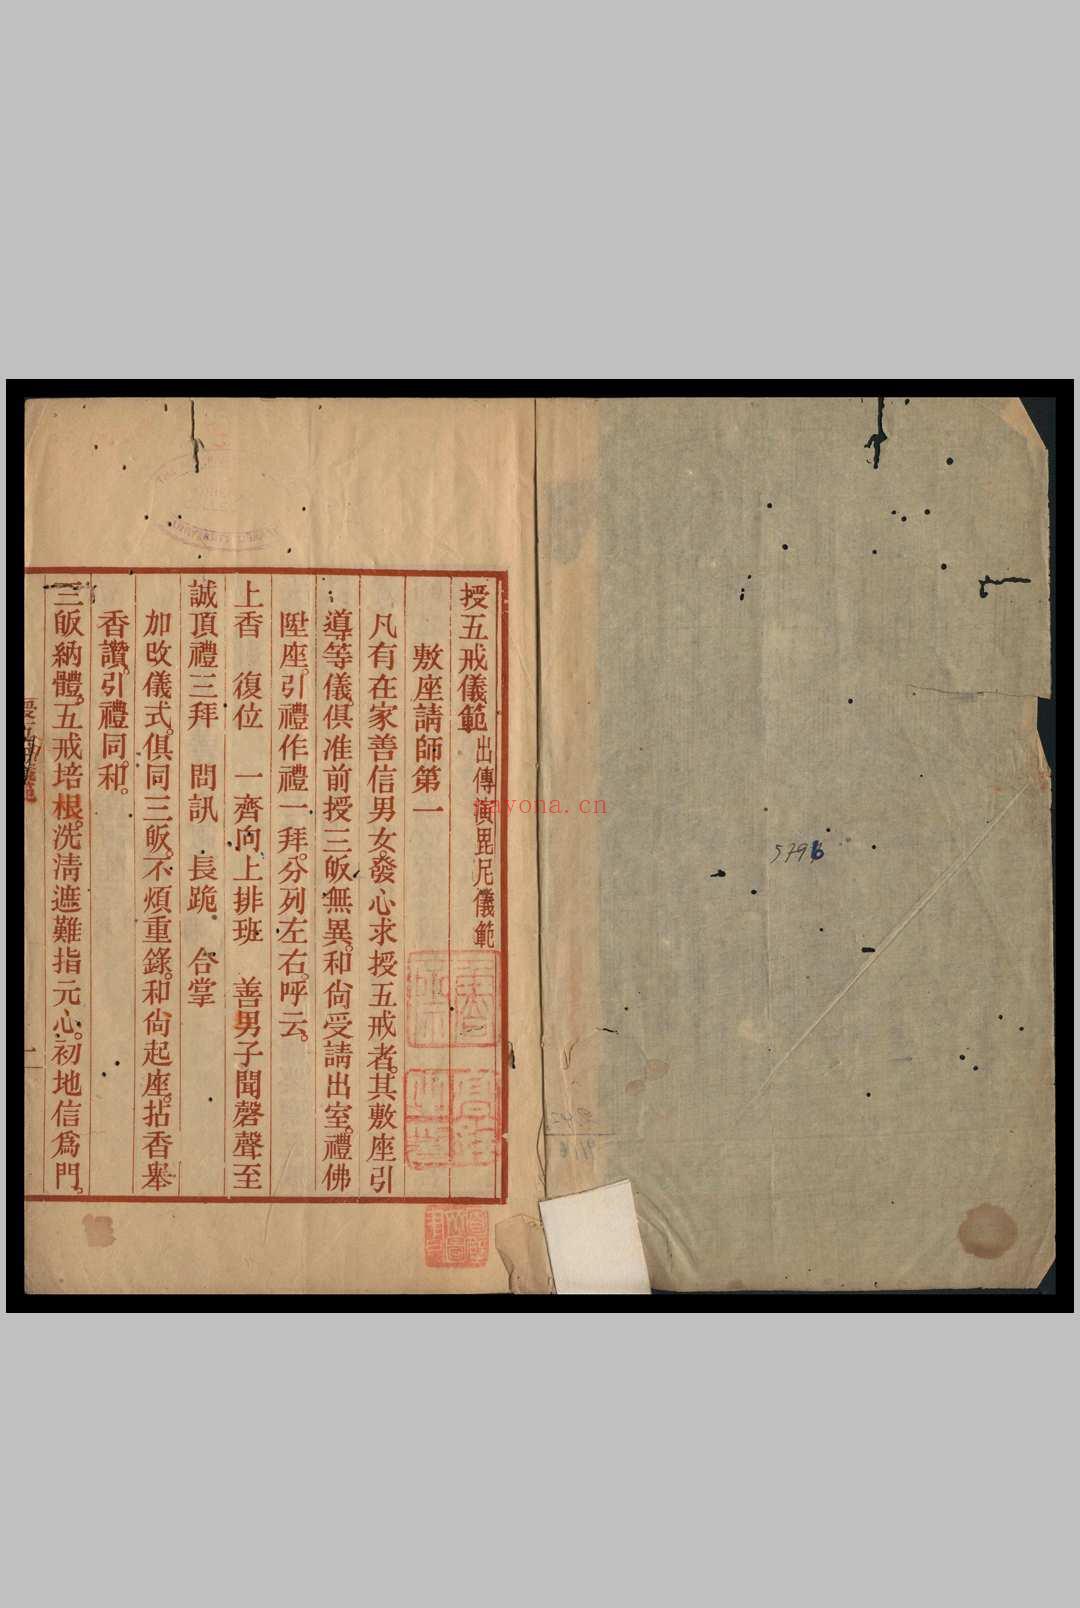 授五戒儀範出傳演毘尼儀範
敷座請師第一
凡有在家善信男女。發心求授五戒者。其敷座引
導等儀。俱准前授三皈無異。和尚受請出室。禮佛
陞座。引禮作禮一拜。分列左右。呼云。
上香　復位　一齊向上排班　善男子聞磬聲至
誠頂禮三拜　問訊　長跪　合掌
加改儀式。俱同三皈。不煩重錄。和尚起座。拈香舉
香讚。引禮同和。
三皈納體。五戒培根。洗清遮難指元心。初地信為門。
5796
nayona.cn